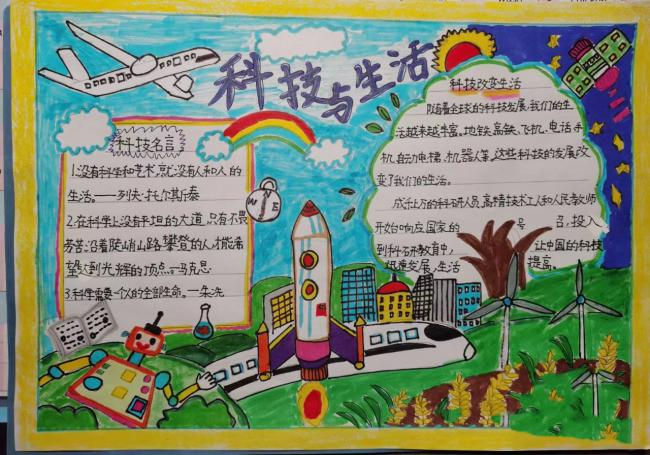 科技与生活
科技名言
1.没有科学和艺术,就没有人和人的
生活。——列夫·托尔斯泰
2.在科学上没有平坦的大道,只有不畏
劳苦沿着陡峭山路攀登的人,才能希
望达到光辉的顶点。—马克思
3.科学需要一个人的全部生命。—朱冼
N
E
S
W
科技改变生活
随着全球的科技发展,我们的生
活越来越丰富。地铁、高铁、飞机、电话、手
机、自动电梯、机器人等,这些科技的发展改
变了我们的生活。
成千上万的科研人员、高精技术工人和人民教师
开始响应国家的 号 召,投入
到科研教育中, 让中国的科技
迅速发展,生活 提高。